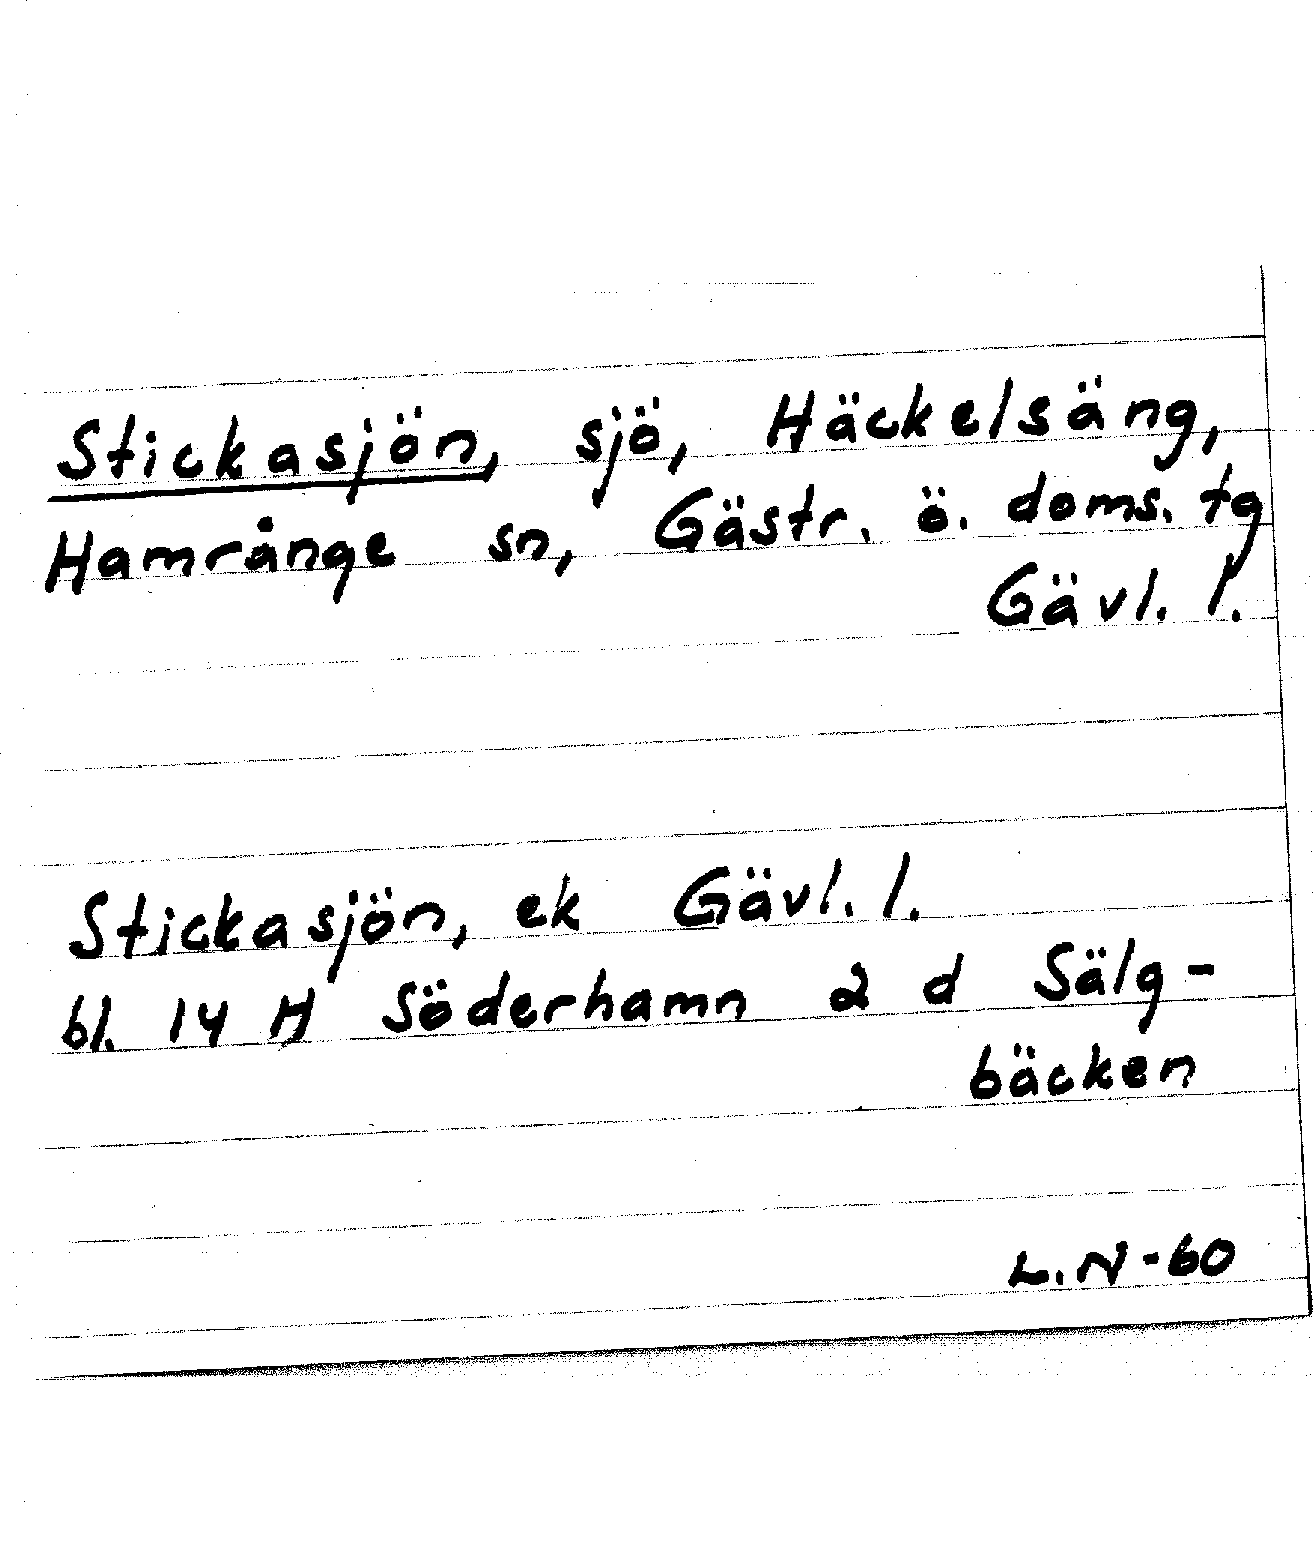 Stickasjön, sjö, Häckelsäng,
Hamrånge sn, Gästr. ö. doms. tg
Gävl. l.
Stickasjön, ek Gävl. l.
bl. 14 H Söderhamn 2 d Sälg-
bäcken
L. N -60